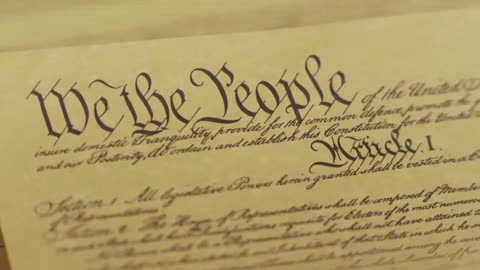 We the People of the United
insure domestic Tranquility, provide for the common defence, promote the
and our Posterity, do ordain and establish this Constitution for the United
Article. I.
Section. 1. All legislative Powers herein granted shall be vested in a
The House of Representatives shall be composed of Member
Qualifications requisite for Electors of the most numerou
a Representative who shall not have attained to
Inhabitant of that State in which he